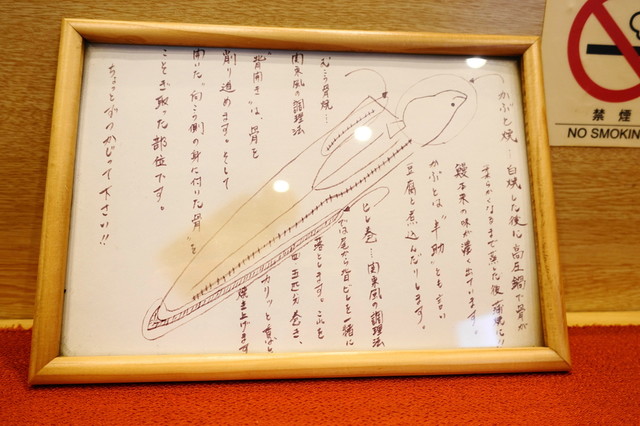 かぶと焼…白焼した後に高圧鍋で骨が
柔らかくなるまで蒸した後、蒲焼に!!
鰻本来の味が濃く出ています。
かぶとは"半助"とも言い
豆腐と煮込んだりします。
ヒレ巻…関東風の調理法
では尾から背ビレを一緒に
落とします。これを
串に巻き、
カリッと香ばしく
焼き上げます
むこう骨焼…
関東風の調理法
"背開き"は、背骨を
削り進めます。そして
開いた"向こう側の身に付いた骨"を
こそぎ取った部位です。
ちょっとずつかじって下さい!!
禁煙
NO SMOKIN